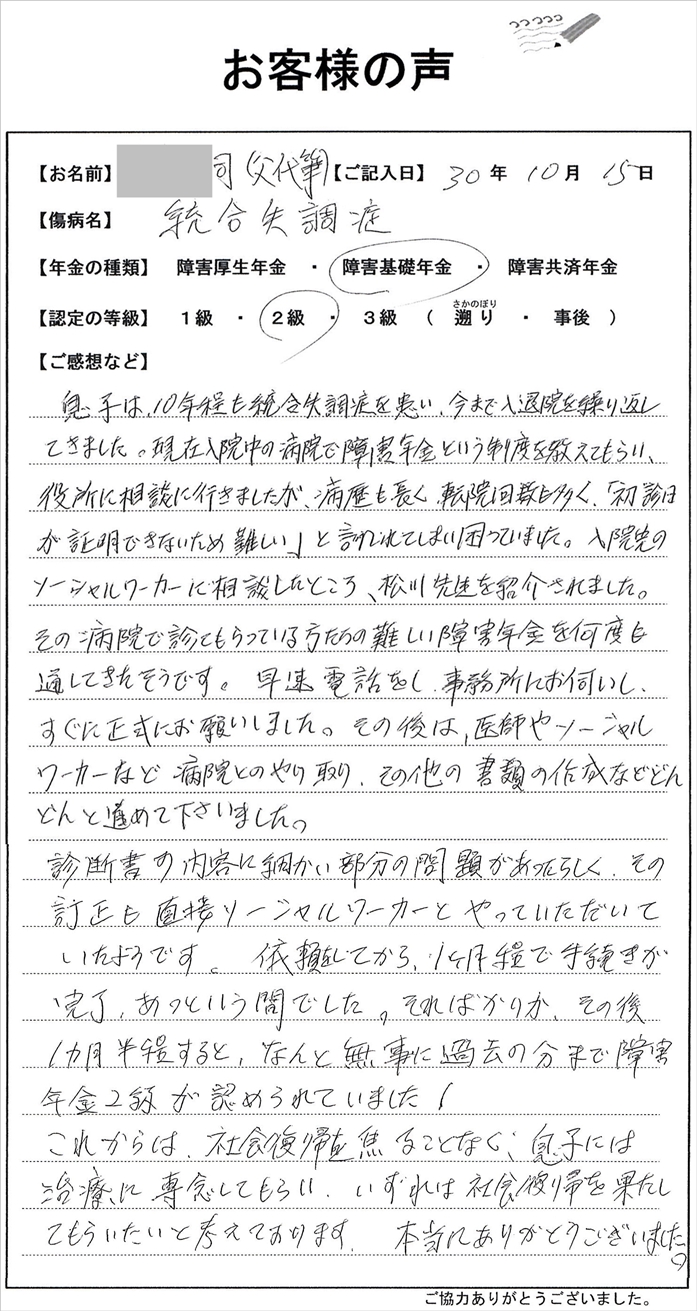 お客様の声
【お名前】 司(父代筆)【ご記入日】 30 年 10 月 15 日
【傷病名】 統合失調症
【年金の種類】 障害厚生年金 ・ 障害基礎年金 ・ 障害共済年金
さかのぼり
【認定の等級】 1級 ・ 2級 ・ 3級 ( 遡り ・ 事後 )
【ご感想など】
息子は、10年程も統合失調症を患い、今まで入退院を繰り返し
てきました。現在入院中の病院で障害年金という制度を教えてもらい、
役所に相談に行きましたが、病歴も長く、転院回数も多く、「初診日
が証明できないため難しい」と言われてしまい困っていました。入院先の
ソーシャルワーカーに相談したところ、松川先生を紹介されました。
その病院で診てもらっている方たちの難しい障害年金を何度も
通してきたそうです。早速電話をし、事務所にお伺いし、
すぐに正式にお願いしました。その後は、医師やソーシャル
ワーカーなど病院とのやり取り、その他の書類の作成などどん
どんと進めて下さいました。
診断書の内容に細かい部分の問題があったらしく、その
訂正も直接ソーシャルワーカーとやっていただいて
いたようです。依頼をしてから、1ヶ月程で手続きが
完了、あっという間でした。そればかりか、その後
1カ月半程すると、なんと無事に過去の分まで障害
年金2級が認められていました!
これからは、社会復帰を焦ることなく、息子には
治療に専念してもらい、いずれは社会復帰を果たし
てもらいたいと考えております。本当にありがとうございました。
ご協力ありがとうございました。